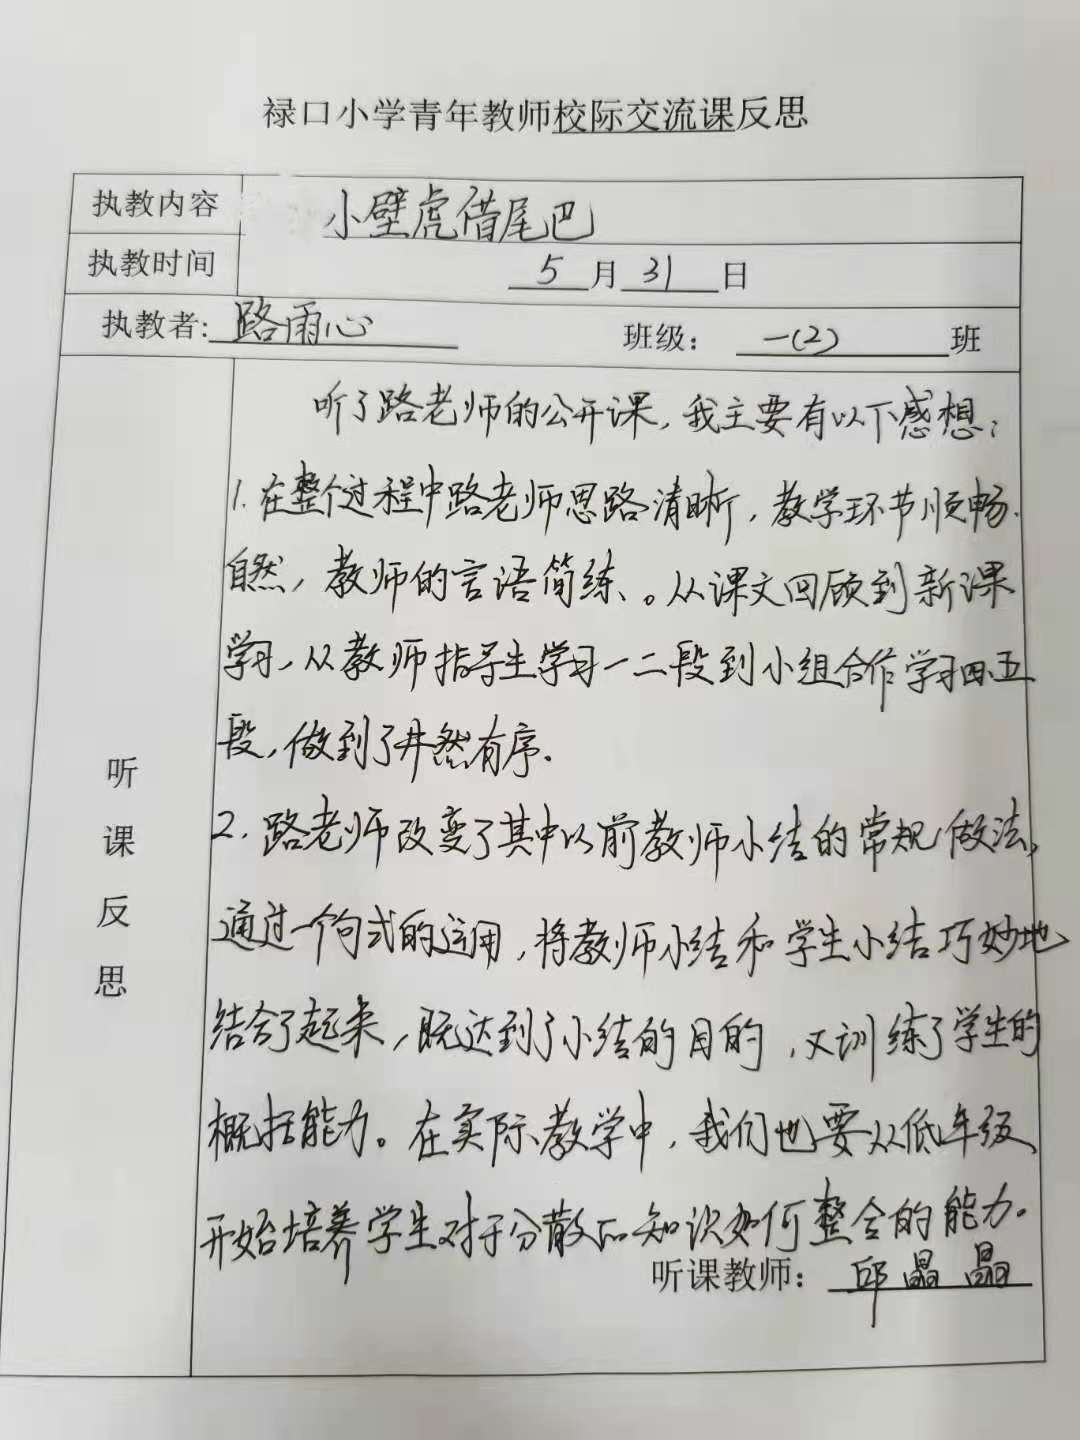 禄口小学青年教师校际交流课反思
执教内容 小壁虎借尾巴
执教时间 5月31日
执教者: 路雨心 班级: 一(2) 班
听课反思
听了路老师的公开课,我主要有以下感想:
1.在整个过程中路老师思路清晰,教学环节顺畅.
自然,教师的言语简练、。从课文回顾到新课
学习,从教师指导生学习一二段到小组合作学习四.五
段,做到了井然有序.
2.路老师改变了其中以前教师小结的常规做法,
通过一个句式的运用,将教师小结和学生小结巧妙地
结合了起来,既达到了小结的目的,又训练了学生的
概括能力。在实际教学中,我们也要从低年级
开始培养学生对于分散的知识如何整合的能力。
听课教师: 邱晶晶